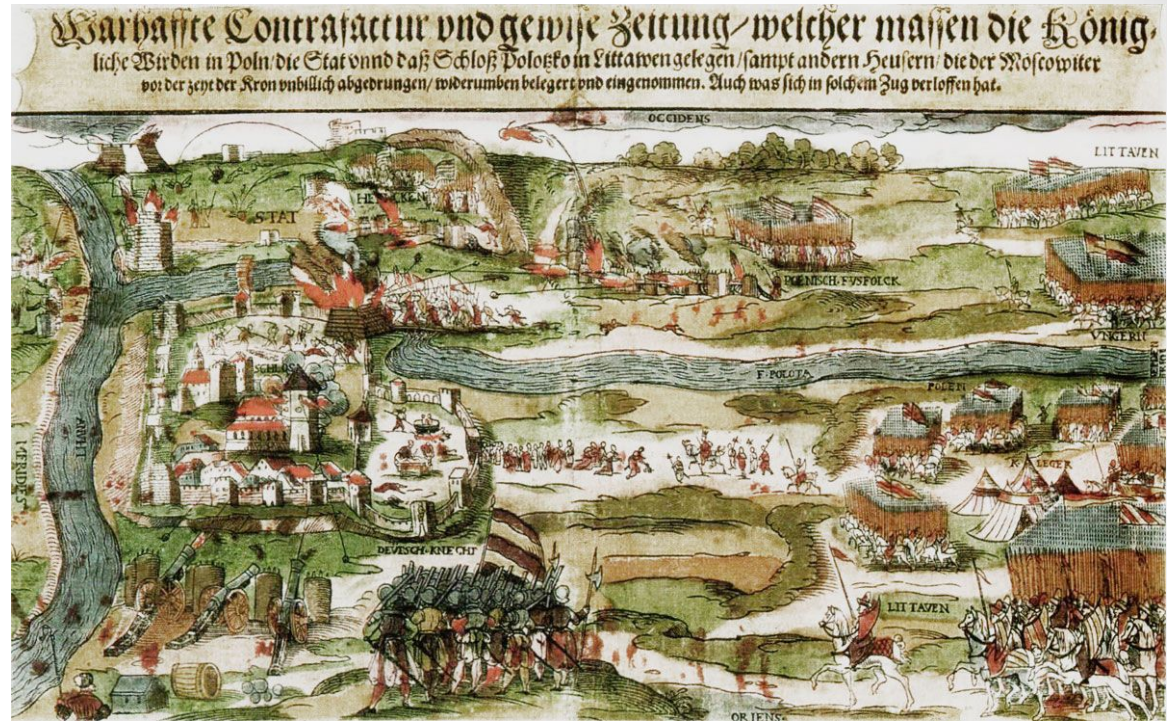 Warhaffte Contrafactur vnd gewise Zeitung/welcher massen die König-
liche Wirden in Poln/die Stat vnnd daß Schloß Polotzko in Littawen gelegen/sampt andern Heusern/die der Moscowiter
vor der zeyt der Kron vnbillich abgedrungen/widerumben belegert vnd eingenommen. Auch was sich in solchem Zug verloffen hat.
OCCIDENS
LITTAVEN
STAT
POLNISCH·FVSFOLCK
VNGERN
SCHLOS
F·POLOTA
POLEN
MERIDES
K·LEGER
DEVTSCH·KNECHT
LITTAVEN
ORIENS·